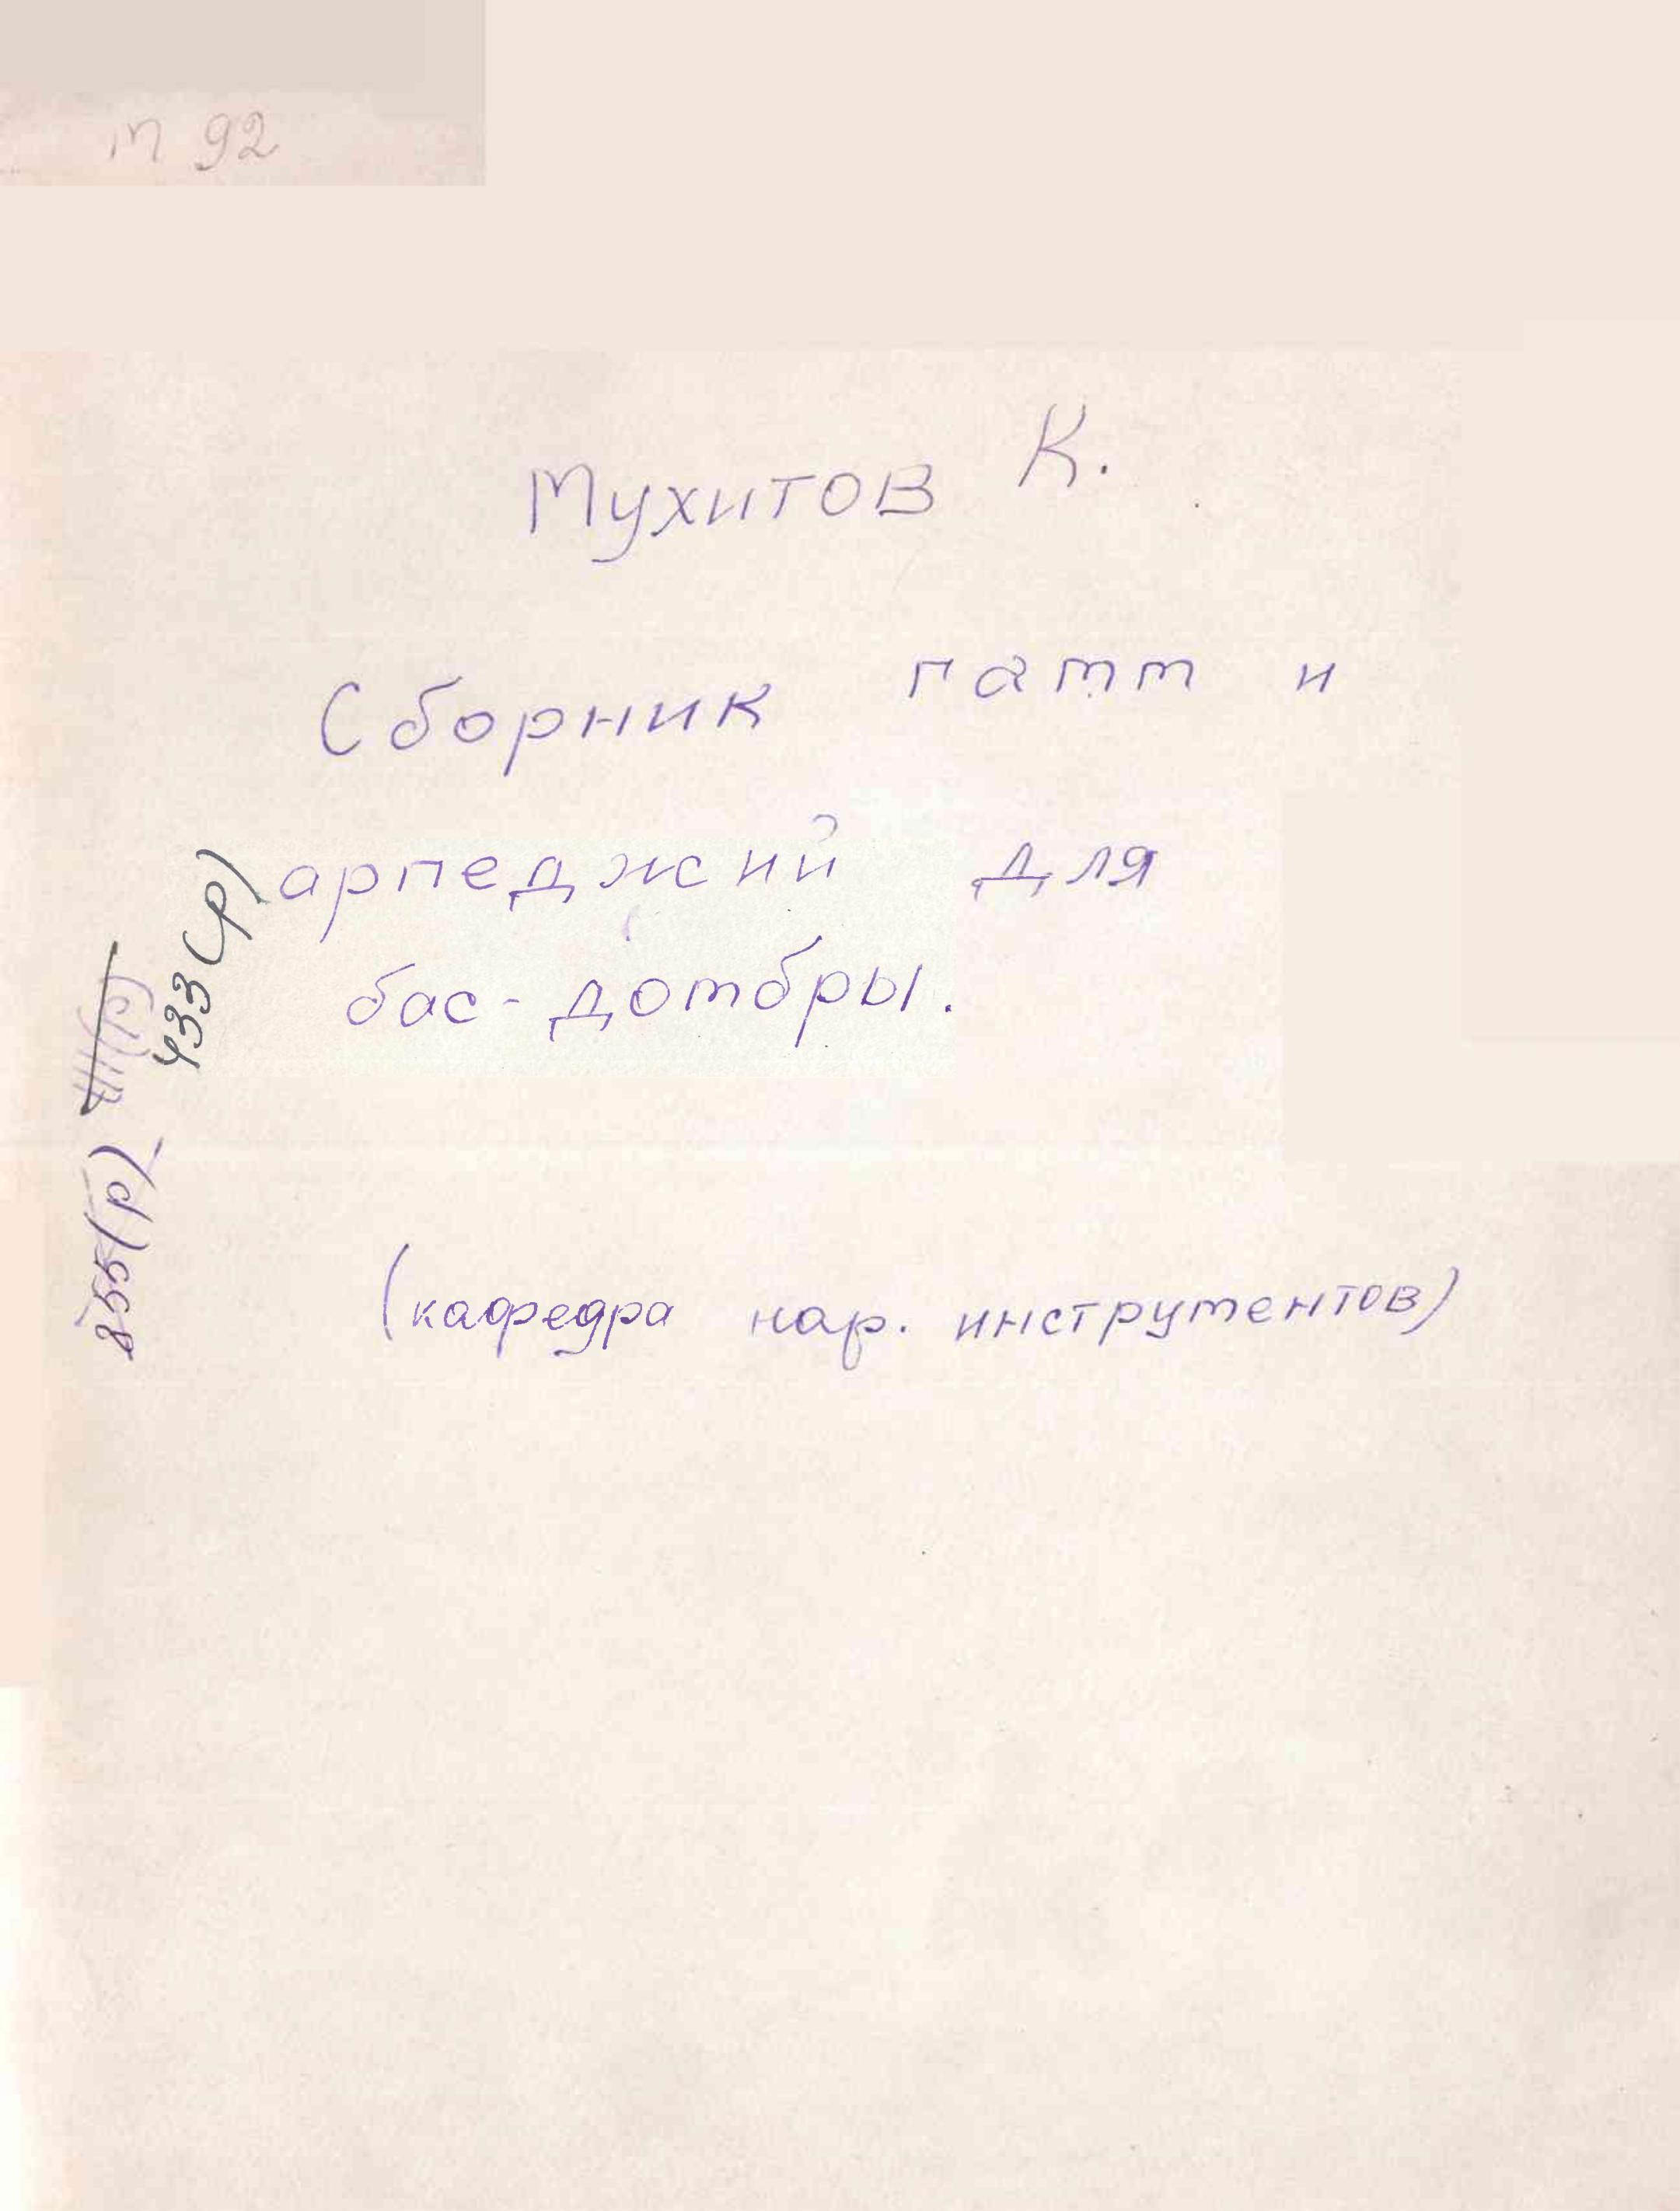 М 92
Мухитов К.
Сборник гамм и
арпеджий для
бас-домбры.
433(р)
855(р)
(кафедра нар. инструментов)